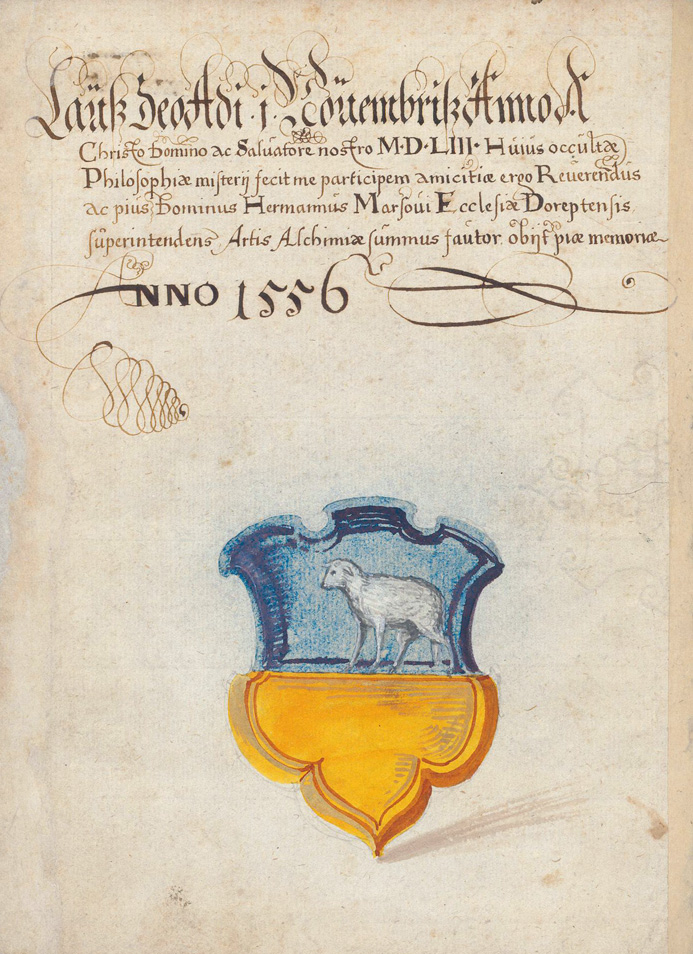 Laüß deo Adi · j · Nouembriß Anno A
Christo Domino ac Saluatore nostro M·D·LIII· Huius occultæ
Philosophiæ misterij fecit me participem amicitiæ ergo Reuerendus
ac pius Dominus Hermannus Marsoui Ecclesiæ Doreptensis
superintendens Artis Alchimiæ summus fautor obijt piæ memoriæ
ANNO 1556